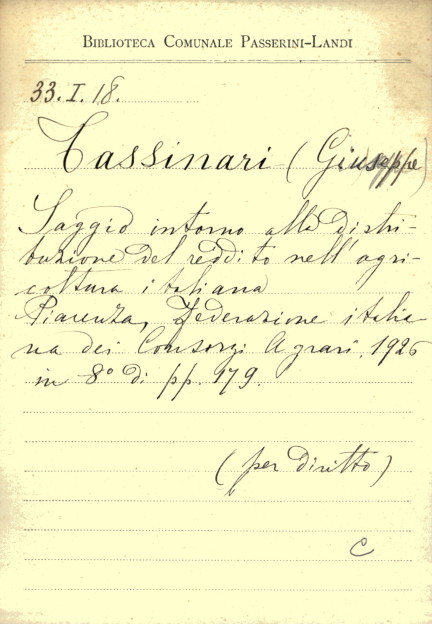 BIBLIOTECA COMUNALE PASSERINI-LANDI
33.I.18.
Tassinari (Giuseppe)
Saggio intorno alla distri-
buzione del reddito nell'agri-
coltura italiana
Piacenza, Federazione italia-
na dei Consorzi Agrari, 1926
in 8° di pp. 179.
(per diritto)
C